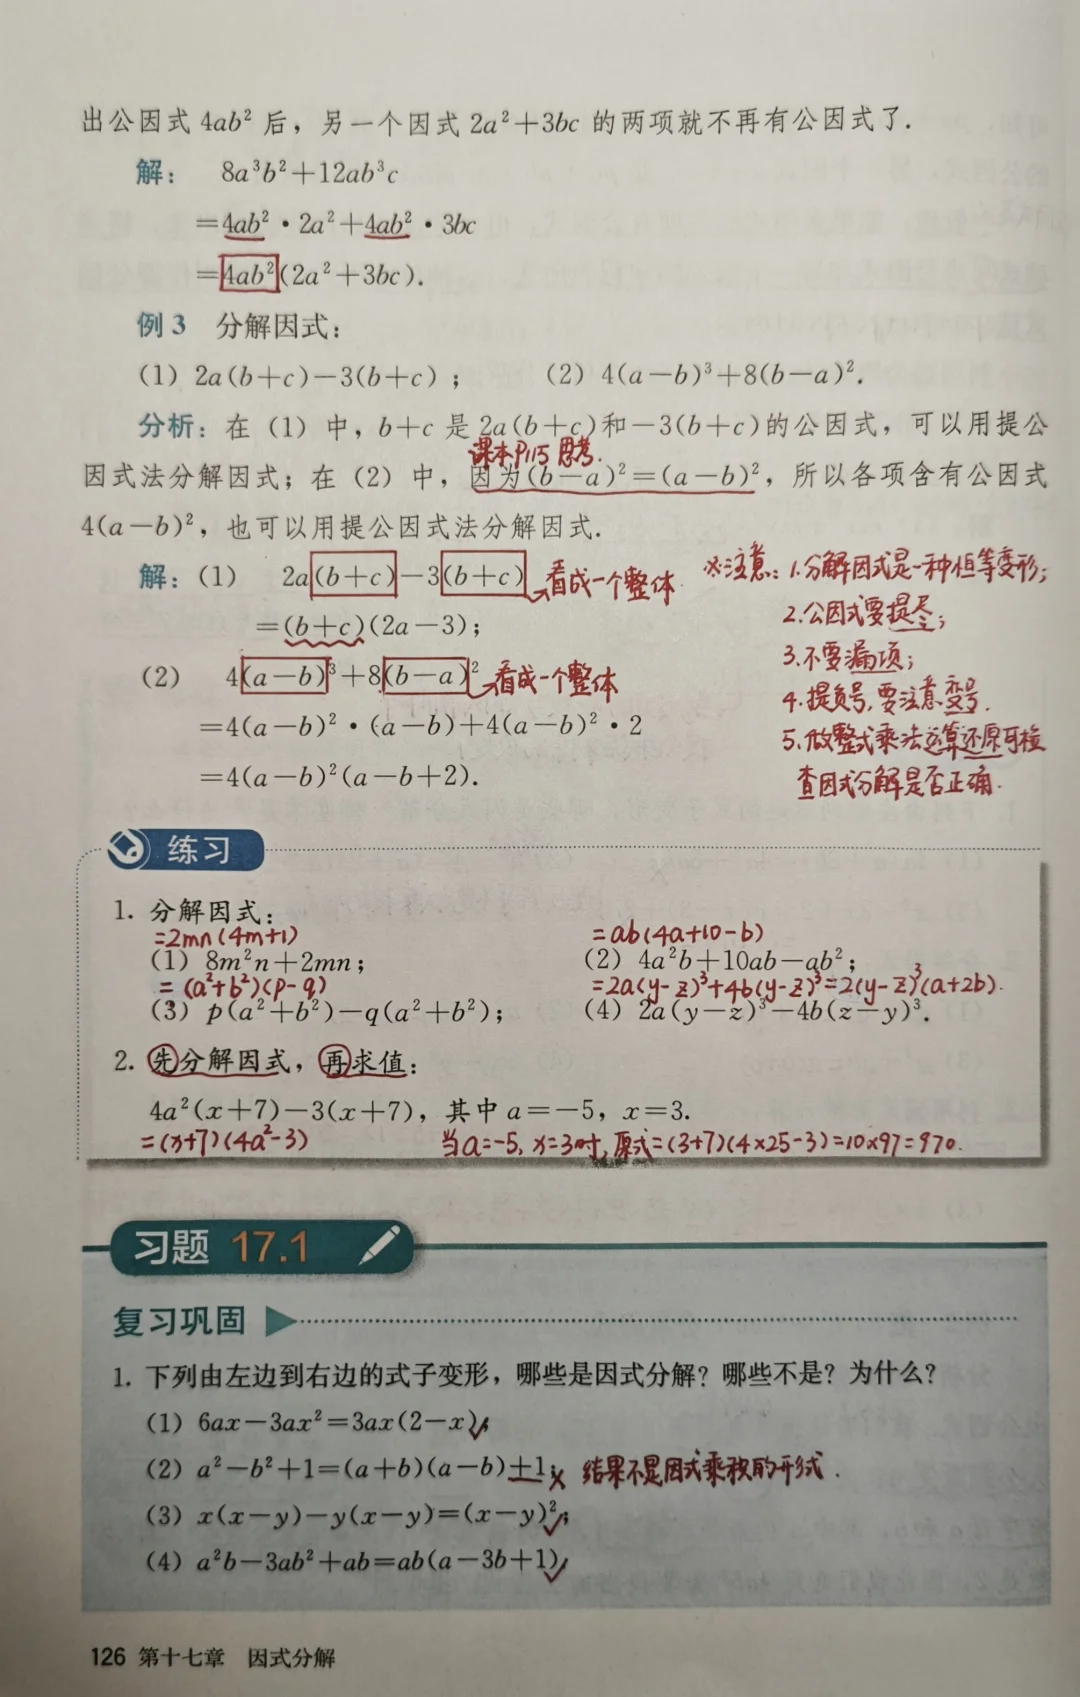 出公因式 4ab² 后，另一个因式 2a²+3bc 的两项就不再有公因式了.
解： 8a³b²+12ab³c
=4ab²·2a²+4ab²·3bc
=4ab²(2a²+3bc).
例 3 分解因式：
(1) 2a(b+c)-3(b+c)； (2) 4(a-b)³+8(b-a)².
分析：在（1）中，b+c 是 2a(b+c)和-3(b+c)的公因式，可以用提公
课本P115 思考.
因式法分解因式；在（2）中，因为(b-a)²=(a-b)²，所以各项含有公因式
4(a-b)²，也可以用提公因式法分解因式.
解：(1) 2a(b+c)-3(b+c) 看成一个整体
=(b+c)(2a-3)；
(2) 4(a-b)³+8(b-a)² 看成一个整体
=4(a-b)²·(a-b)+4(a-b)²·2
=4(a-b)²(a-b+2).
※注意：1.分解因式是一种恒等变形；
2.公因式要提尽；
3.不要漏项；
4.提负号，要注意变号.
5.做整式乘法运算还原可检
查因式分解是否正确.
练习
1. 分解因式：
=2mn(4m+1) =ab(4a+10-b)
(1) 8m²n+2mn； (2) 4a²b+10ab-ab²；
=(a²+b²)(p-q) =2a(y-z)³+4b(y-z)³=2(y-z)³(a+2b).
(3) p(a²+b²)-q(a²+b²)； (4) 2a(y-z)³-4b(z-y)³.
2. 先分解因式，再求值：
4a²(x+7)-3(x+7)，其中 a=-5，x=3.
=(x+7)(4a²-3) 当a=-5, x=3时, 原式=(3+7)(4×25-3)=10×97=970.
习题 17.1
复习巩固
1. 下列由左边到右边的式子变形，哪些是因式分解？哪些不是？为什么？
(1) 6ax-3ax²=3ax(2-x)；✓
(2) a²-b²+1=(a+b)(a-b)+1；× 结果不是因式乘积的形式.
(3) x(x-y)-y(x-y)=(x-y)²；✓
(4) a²b-3ab²+ab=ab(a-3b+1).✓
126 第十七章 因式分解